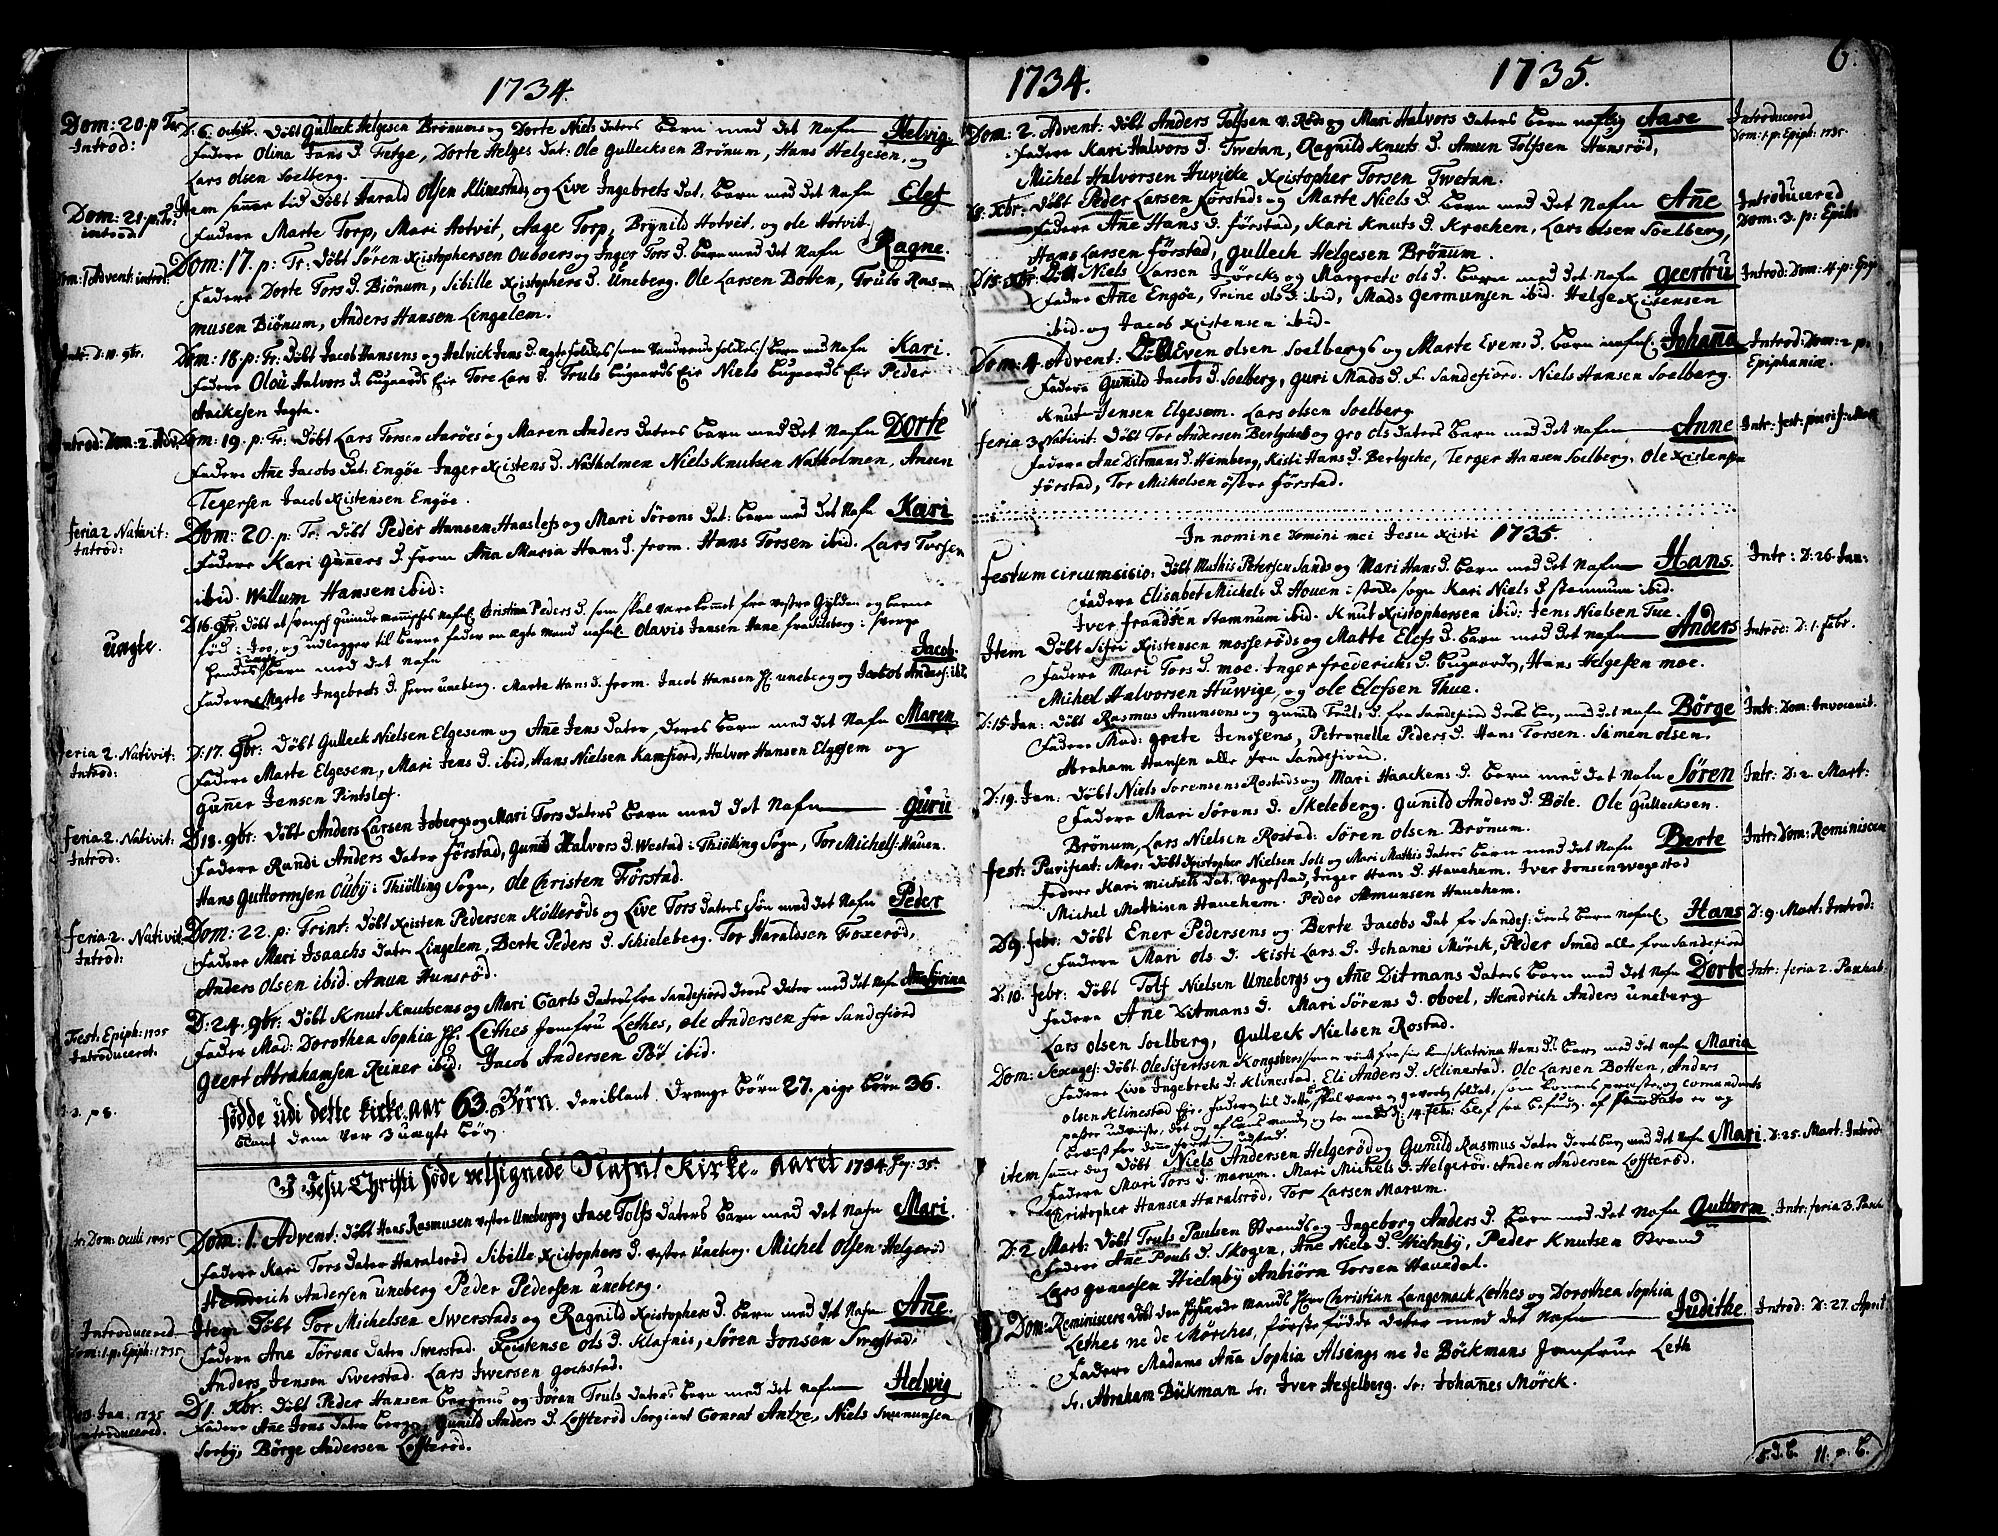 1734.
Dom: 20. p Tr D: 6. octobr. Döbt Gulleck Helgesen Brönums og Dorte Niels daters barn med det nafn Helvig
Introd: Fadere Olina Jans D. Fetge, Dorte Helges dat: Ole Gullecksen Brönum, Hans Helgesen, og
Lars Olsen Soelberg.
Item samme tid döbt Harald Olsen Klinestads og Live Ingebrets dat. barn med det nafn Elef
Dom: 21. p. Tr: introd: Fadere Marte Torp, Mari Hotvit, Aage Torp, Brynild Hotvit, og ole Hotvit.
Dom: 17. p: Tr: Döbt Sören Xistophersen Ouboers og Inger Tors D. barn med det nafn Ragne.
Dom: 1 Advent: introd: Fadere Dorte Tors D. Biönum, Sibille Xistophers D. Uneberg. Ole Larsen Botten, Truls Ras-
musen Biönum, Anders Hansen Lingelem.
Intr: D: 10. 9br. Dom: 18. p: Tr: Döbt Jacob Hansens og Helvick Jens D. barn med nafn Kari.
Fadere Olou Halvors D. Bugaards Eie Tore Lars D. Truls Bugaards Eie Niels Bugaards Eie Peder
Introd: Dom: 2. Adv. Dom: 19. p: Tr: Döbt Lars Torsen Aaröes og Maren Anders daters barn med det nafn Dorte
Fadere Ane Jacobs dat. Engöe Inger Xistens D. Natholmen Niels Knutsen Natholmen, Amun
Tegersen Jacob Xistensen Engöe.
feria 2. Nativit: Introd: Dom: 20. p: Tr: Döbt Peder Hansen Haaslefs og Mari Sörens dat: barn med det nafn Kari
Fadere Kari Gunners D. from Ana Maria Hans D. from. Hans Torsen ibid. Lars Torsen
ibid. Wallum Hansen ibid:
D. 16. 9br: Döbt et svensk quindemenniskes nafnl. Christina Peders D. som skal vare kommet fra vestre Gylden og barne
uægte. Jacob.
hendes uægte barn med det nafn
Fadere Marte Ingebrets D. Herre uneberg. Marte Hans D. from. Jacob Hansen uneberg og Jacob Anders: ibd.
feria 2. Nativit: Introd: D: 17. 9br: Döbt Gulleck Nielsen Elgesem og Ane Jens dater, deres barn med det nafn Maren
Fadere Marte Elgesem, Mari Jens D. ibid, Hans Nielsen Kamfiord, Halvor Hansen Elgesem og
Guner Jensen Pintslef.
feria 2. Nativit: Introd: D 18. 9br: Döbt Anders Larsen Jobergs og Mari Tors daters barn med det nafn Guru
Fadere Randi Anders dater Förstad, Gunild Halvors D. Westad i Thiölling Sogn, Tor Michels: Hauen.
Hans Guttormsen Ouby i Thiölling Sogn, Ole Christen Förstad.
feria 2. Nativit Introd: Dom: 22. p: Trint: Döbt Xisten Pedersen Kölleröds og Live Tors daters Sön med det nafn Peder
Fadere Mari Isaachs dater Lingelem, Berte Peders D. Schieleberg. Tor Haraldsen Foxeröd,
Anders Olsen ibid. Amun Hunsröd.
Fest: Epiph: 1735 Introducerd. D: 24. 9br: Döbt Knut Knutsens og Mari Carls daters fra Sandefiord deres dater med det nafn
Fader Mad: Dorothea Sophia Lethes Jomfru Lethes, ole Andersen fra Sandefiord
Geert Abrahamsen Reiner ibid: Jacob Andersen Böt ibid.
födde udi dette kirke aar 63. Börn deriblant drenge börn 27. pige börn 36.
blant dem var 3 uægte börn
I Jesu Christi söde velsignede Nafn! Kirke-aaret 1734. 35.
Dom: Oculi 1735 Dom: 1. Advent: döbt Hans Rasmusen vestre Uneberg og Anse Tolfs daters barn med det nafn Mari.
Fadere Kari Tors dater Haralsröd Sibille Xistophers D. vestre Uneberg. Michel Olsen Helgeröd
Hendrich Andersen uneberg Peder Pedersen uneberg.
Introducered Dom: 1. p: Epiph: 1735 Item Döbt Tor Michelsen Swerstads og Ragnild Xistophers D. barn med det nafn Ane.
Fadere Ane Törens dater Swerstad. Xistense Ols D. Klafnis, Sören Jonsen Swerstad,
Anders Jensen Swerstad. Lars Iwersen gochstad.
Jan: 1735 introducered. D 1. Xbr: Döbt Peder Hansen og Jöran Truls daters barn med det nafn Helwig
Fadere Ane Jons dater Berg, Gunild Anders D. Löffteröd Sergiant Conrat Antze, Niels
Sorby, Börge Andersen Löffteröd.
1734. 1735. 6.
Dom: 2. Advent: döbt Anders Tolfsen v. Röds og Mari Halvors daters barn naflig Aase Introducered Dom: 1. p: Epiph: 1735.
Fadere Kari Halvors D. Twetan, Ragnild Knuts D. Amun Tolfsen Hunsröd,
Michel Halvorsen Huvicke Xistopher Torsen Twetan.
Xbr: döbt Peder Larsen Förstads og Marte Niels D. barn med det nafn Ane Introducered Dom: 3. p: Epiph:
Fadere Ane Hans D. Förstad, Kari Knuts D. Krochem, Lars olsen Soelberg,
Hans Larsen Förstad, Gulleck Helgesen Brönum.
D 15. Xbr. Döbt Niels Larsen og Margrete ols D. barn med det nafn Geertru Introd: Dom: 4. p: Epip
Fadere Ane Engöe, Trine ols D. ibid, Mads Germunsen ibid. Helge Xistensen
ibid. og Jacob Xistensen ibid.
Dom: 4. Advent. Döbt Even olsen Soelbergs og Marte Evens D. barn nafnl. Johana Introd: Dom: 2 p: Epiphaniæ.
Fadere Gunild Jacobs D. Soelberg, Guri Mads D. f. Sandefiord. Niels Hansen Soelberg
Knut Jensen Elgesem. Lars Olsen Soelberg
feria 3. Nativit: Döbt Tor Andersen Berlyches og Gro Ols daters barn med det nafn Anne
Fadere Ane Ditmans D. Hemberg, Kisti Hans D. Berlyche, Terger Hansen Soelberg. Ole Xistensen
Förstad, Tor Mickelsen östre Förstad.
In nomine Domini mei Jesu Xisti 1735.
Festum circumcisio: Döbt Mathis Petersen Sands og Mari Hans D. barn med det nafn Hans. Intr: D: 26. Jan:
Fadere Elisabet Michels D. Houen i stocke sogn Kari Niels D. stammum ibid.
Iver frandsen Stamnum ibid. Knut Xistophersen ibid: Jens Nielsen Tue.
Item Döbt Sifer Xistensen mosseröds og Matte Elefs D. barn med det nafn Anders Introd: D: 1. febr.
Fadere Mari Tors D. moe. Inger fredericks D. Bugaarden, Hans Helgessen moe.
Michel Halvorsen Huwige, og Ole Elefsen Thue.
D: 15 Jan: Döbt Rasmus Amunsons og Gunild Truls D. fra Sandefiord deres barn med det nafn Börge Intr: Dom: Invocavit.
Fadere Mad: Grete Jenssens, Petronelle Peders D. Hans Torsen. Simen olsen.
Abraham Hansen alle fra Sandefiord.
D: 19. Jan: Döbt Niels Sorensens Rostads og Mari Haackens D. barn med det nafn Sören Intr: D: 2. Mart:
Fadere Mari Sörens D. Skeleberg. Gunild Anders D. Böle. Ole Gullecksen.
Brönum, Lars Nielsen Rostad. Sören Olsen Brönum.
fest: Purificat: Mar: döbt Xistopher Nielsen Soli og Mari Mathis daters barn med det nafn Berte Intr: Dom: Reminiscer
Fadere Kari Michels dat. Vegestad, Inger Hans D. Hauehem. Iver Jonsen Wegestad
Michel Mathisen Hauehem. Peder Asmunsen Hauehem.
D 9 febr: Döbt Ener Pedersens og Berte Jacobs dat fr Sandef: deres barn nafnl. Hans D: 9. Mart: Introd:
Fadere Mari ols D. Kisti Lars D. Johanes Mörck, Peder Smed alle fra Sandefiord
D: 10. febr: Döbt Tolf Nielsen Unebergs og Ane Ditmans daters barn med det nafn Dorte Intr: feria 2. Paschat:
Fadere Ane Ditmans D. Mari Sörens D. oboel, Hendrich Anders uneberg
Lars Olsen Soelberg, Gulleck Nielsen Rostad.
Dom: Sexages: Döbt Ole Sifertsen Kongsbers Katrina Hans D. barn med det nafn Maria
Fadere Live Ingebrets D. Klinestad. Eli Anders D. Klinestad. Ole Larsen Botten, Anders
olsen Klinestad Eie. Faderen til dette barn skal vare en geworben soldat,
item samme dag Döbt Niels Andersen Helgeröd og Gunild Rasmus dater deres barn med det nafn Mari D: 25. Mart. Introd:
Fadere Mari Tors D. marum. Mari Michels D. Helgeröd. Anders Andersen Löffteröd.
Christopher Hansen Haralsröd, Tor Larsen Marum.
D: 2 Mart: Döbt Truls Paulsen Strands og Ingeborg Anders D. barn med det nafn Guttorm Intr: feria 3. Pasch
Fadere Ane Pouls D. Skogen, Ane Niels D. Hielmby, Peder Knutsen Strand
Lars Gunersen Hielmby Anbiörn Torsen Hauedal.
Dom: Reminiscere Döbt Herr Christian Langemack Lethes og Dorothea Sophia
Lethes ne de Mörches, förste födde dater med det nafn Judithe Introd: D: 27. April
Fadere Madame Ana Sophia Alsings ne de Böckmans Jomfrue Leth
Sr. Abraham Böckman Sr. Iver Hesselberg. Sr. Johanes Mörck.
5. D. B. 11. p. B.